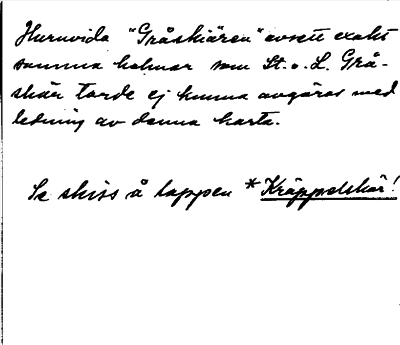 Huruvida "Gråskären" avsett exakt
samma holmar som St. o. L. Grå-
skär torde ej kunna avgöras med
ledning av denna karta.
Se skiss å lappen *Kräppelskär!